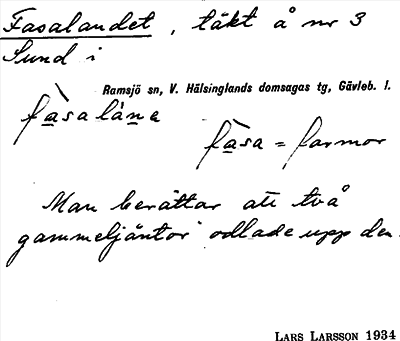 Fasalandet, täkt å nr 3
Sund i
Ramsjö sn, V. Hälsinglands domsagas tg, Gävleb. l.
fàsaláne
fàsa = farmor
Man berättar att två
gammeljäntor odlade upp den.
LARS LARSSON 1934